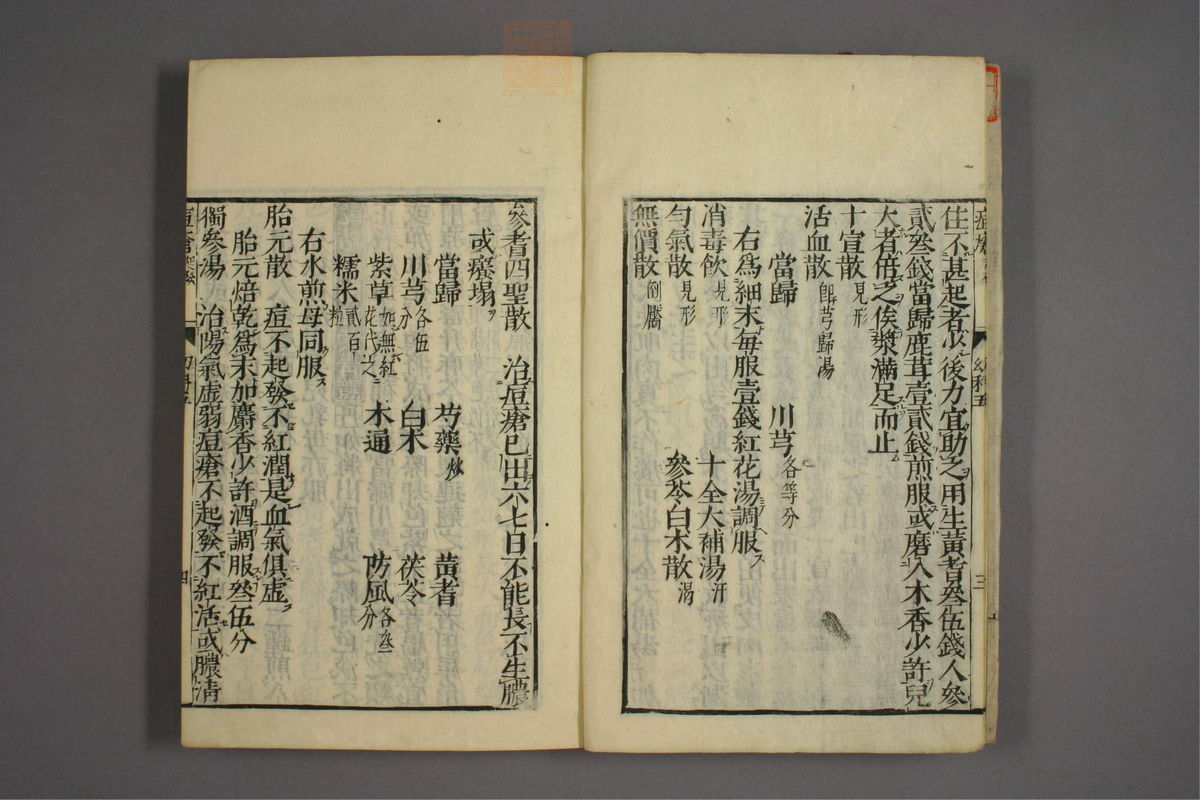 住不甚起者必後力宜助之用生黃耆叄伍錢人參
貳叄錢當歸鹿茸壹貳錢煎服或磨入木香少許兒
大者倍之俟漿滿足而止
十宣散 見形
活血散 卽芎歸湯
當歸 川芎 各等分
右爲細末每服壹錢紅花湯調服
消毒飮 見形 十全大補湯 汗
勻氣散 見形 參苓白朮散 渴
無價散 倒黶
痘瘡 幼科五 三
參耆四聖散 治痘瘡已出六七日不能長不生膿
或癢塌
當歸 芍藥 炒 黃耆
川芎 各伍分 白朮 茯苓
紫草 如無紅花代之 木通 防風 各叄分
糯米 貳百粒
右水煎母同服
胎元散 痘不起發不紅潤是血氣俱虛
胎元焙乾爲末加麝香少許酒調服叄伍分
獨參湯 治陽氣虛弱痘瘡不起發不紅活或膿淸
痘瘡 幼科五 四